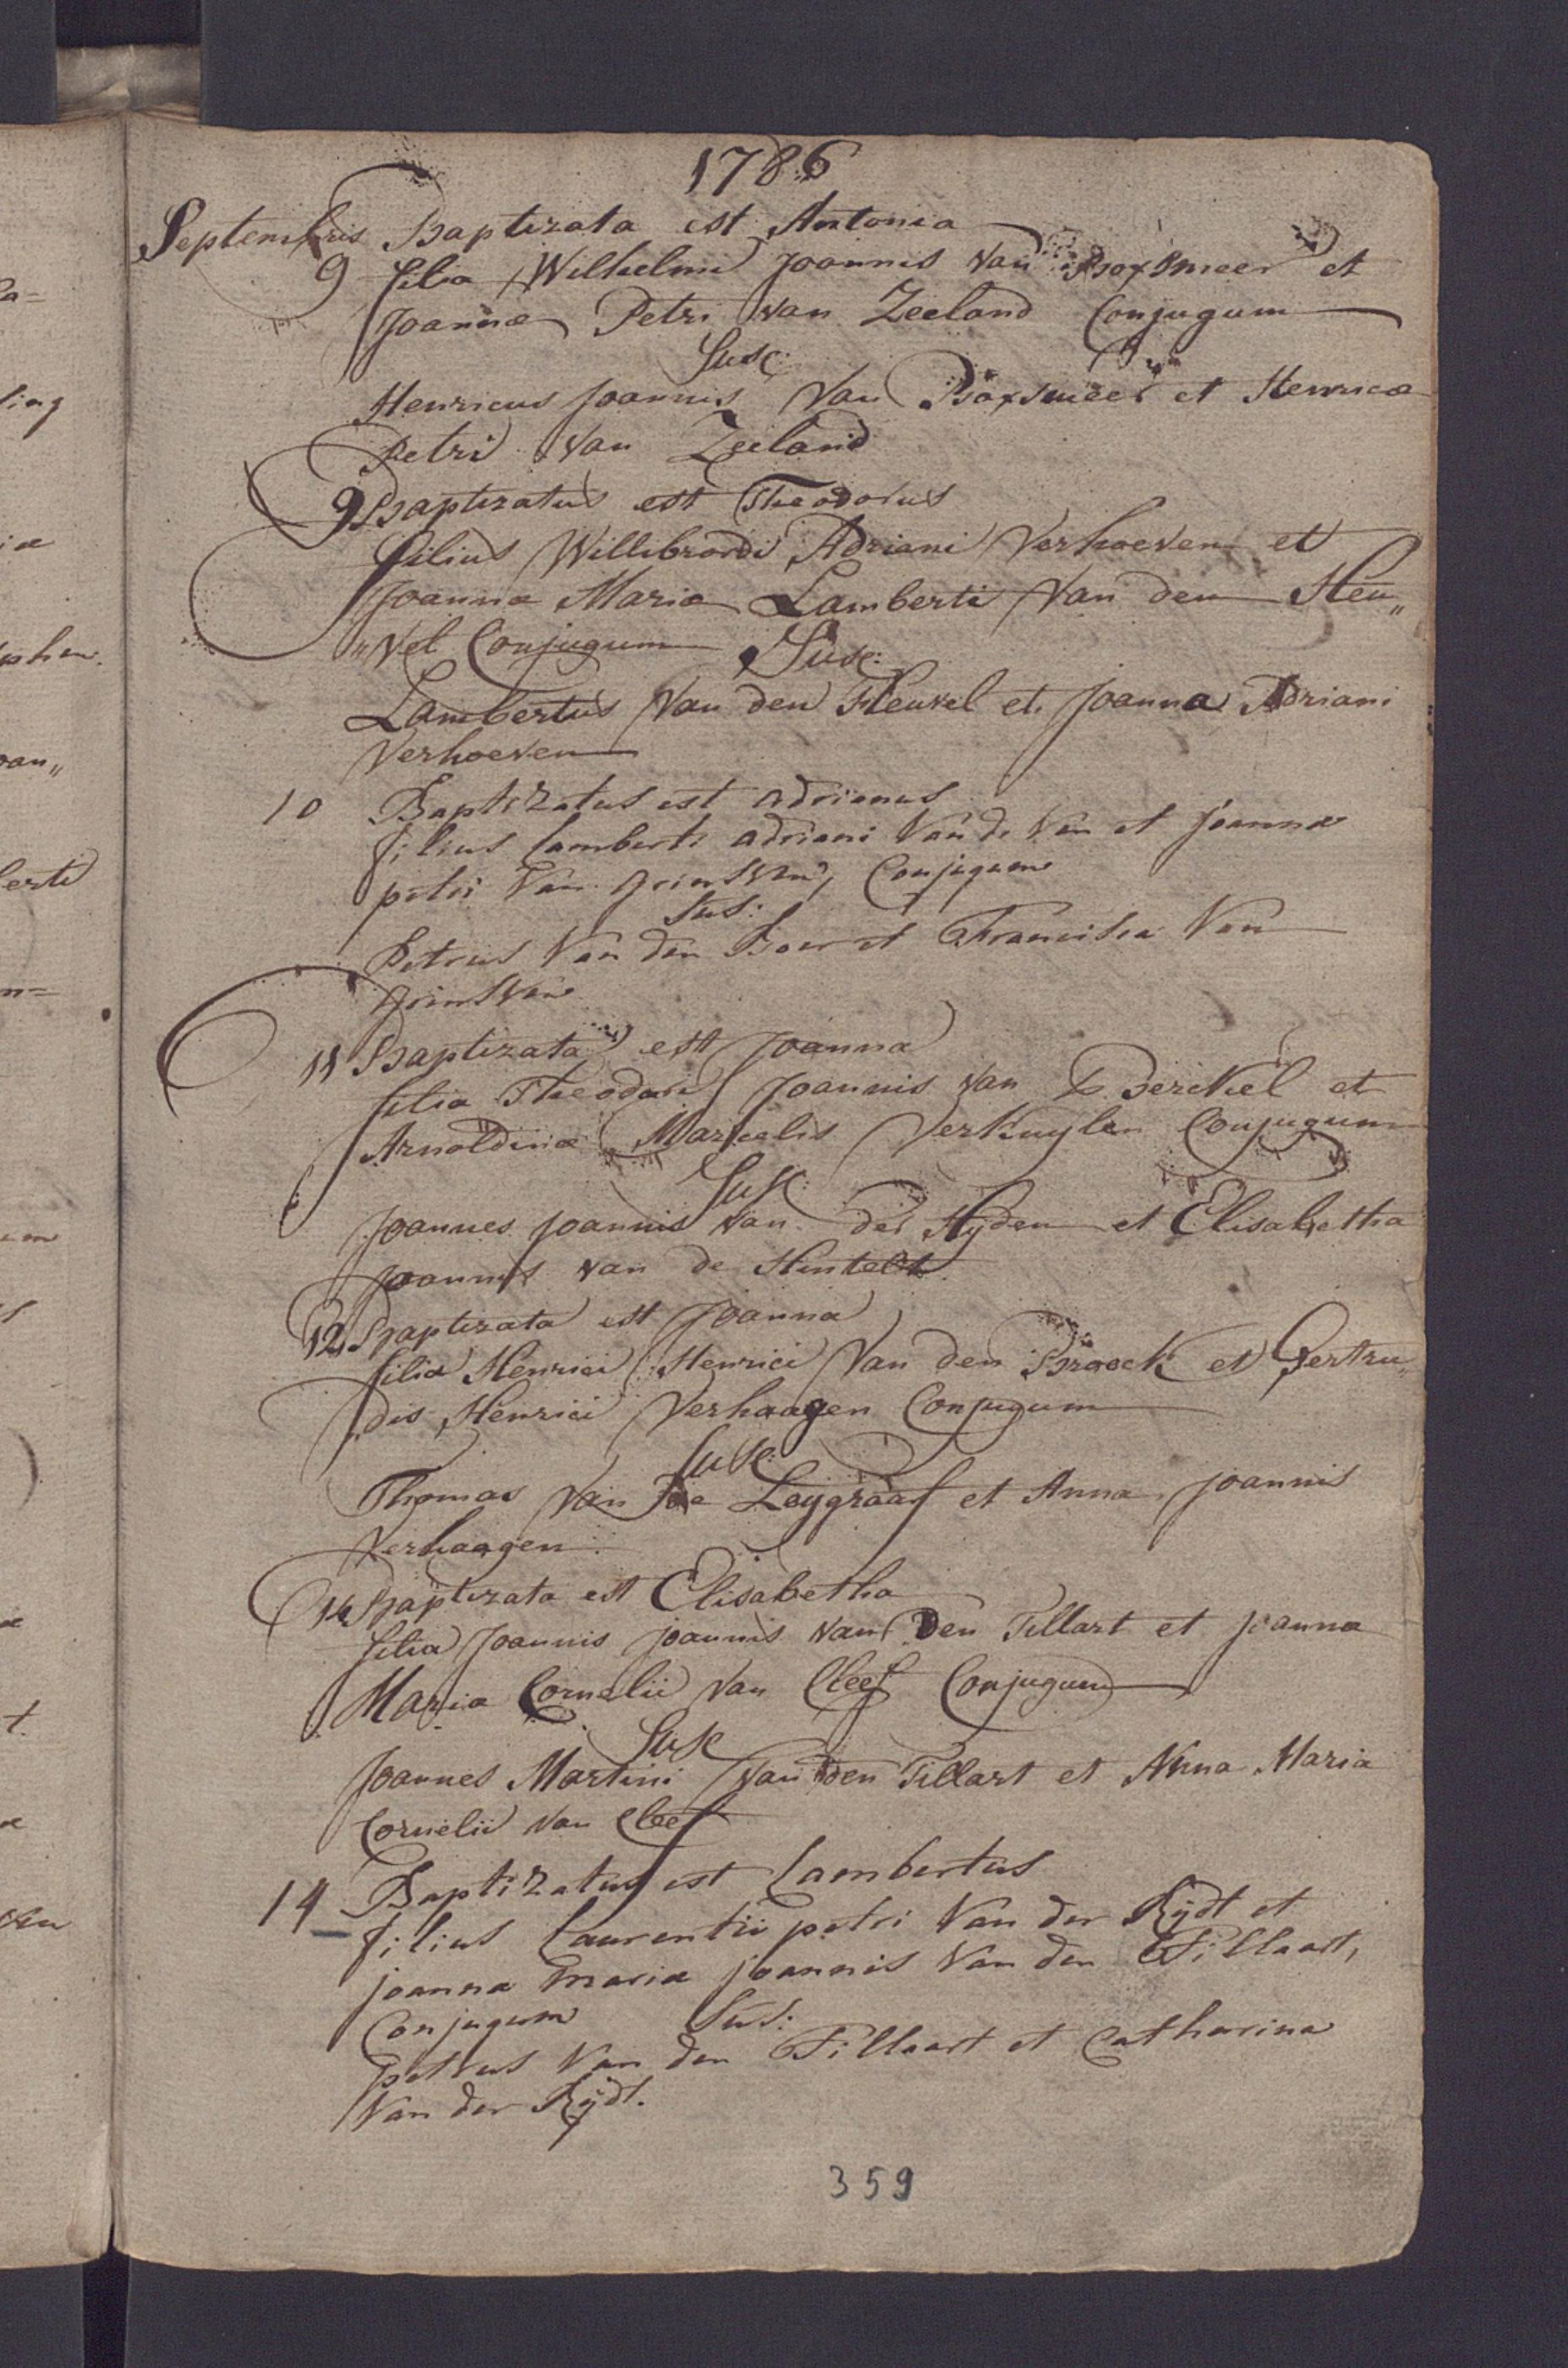 1786
Septembris Baptizata est Antonia
9 filia Wilhelmi Joannis van Boxsmeer et
Joannæ Petri van Zeeland Conjugum
Susc:
Henricus Joannis van Boxsmeer et Henrica
Petri van Zeeland
9 Baptizatus est Theodorus
filius Willibrordi Adriani Verhoeven et
Joanna Maria Lamberti van den Heu„
„vel Conjugum Susc:
Lambertus van den Heuvel et Joanna Adriani
Verhoeven
10 Baptizatus est adrianus
filius Lamberti adriani Van de Ven et Joanna
petri Van Grinsven, Conjugum
Sus:
Petrus Van den Boer et Francisca Van
Grinsven
11 Baptizata est Joanna
filia Theodori Joannis van Berckel et
Arnoldina Marcelis Verkuylen Conjugum
Susc:
Joannes Joannis van der Hyden et Elisabetha
Joannis van de Hintelt
12 Baptizata est Joanna
filia Henrici Henrici van den Broock et Gertru„
dis Henrici Verhaagen Conjugum
Susc:
Thomas van de Leygraaf et Anna Joannis
Verhaagen
14 Baptizata est Elisabetha
filia Joannis Joannis van Den Tillart et Joanna
Maria Cornelii van Cleef Conjugum
Susc
Joannes Martini van den Tillart et Anna Maria
Cornelii van Cleef
14 Baptizatus est Lambertus
filius Laurentii petri Van der Rijdt et
joanna maria joannis Van den Tillaart,
Conjugum Sus:
petrus Van den Tillaart et Catharina
Van der Rijdt.
359